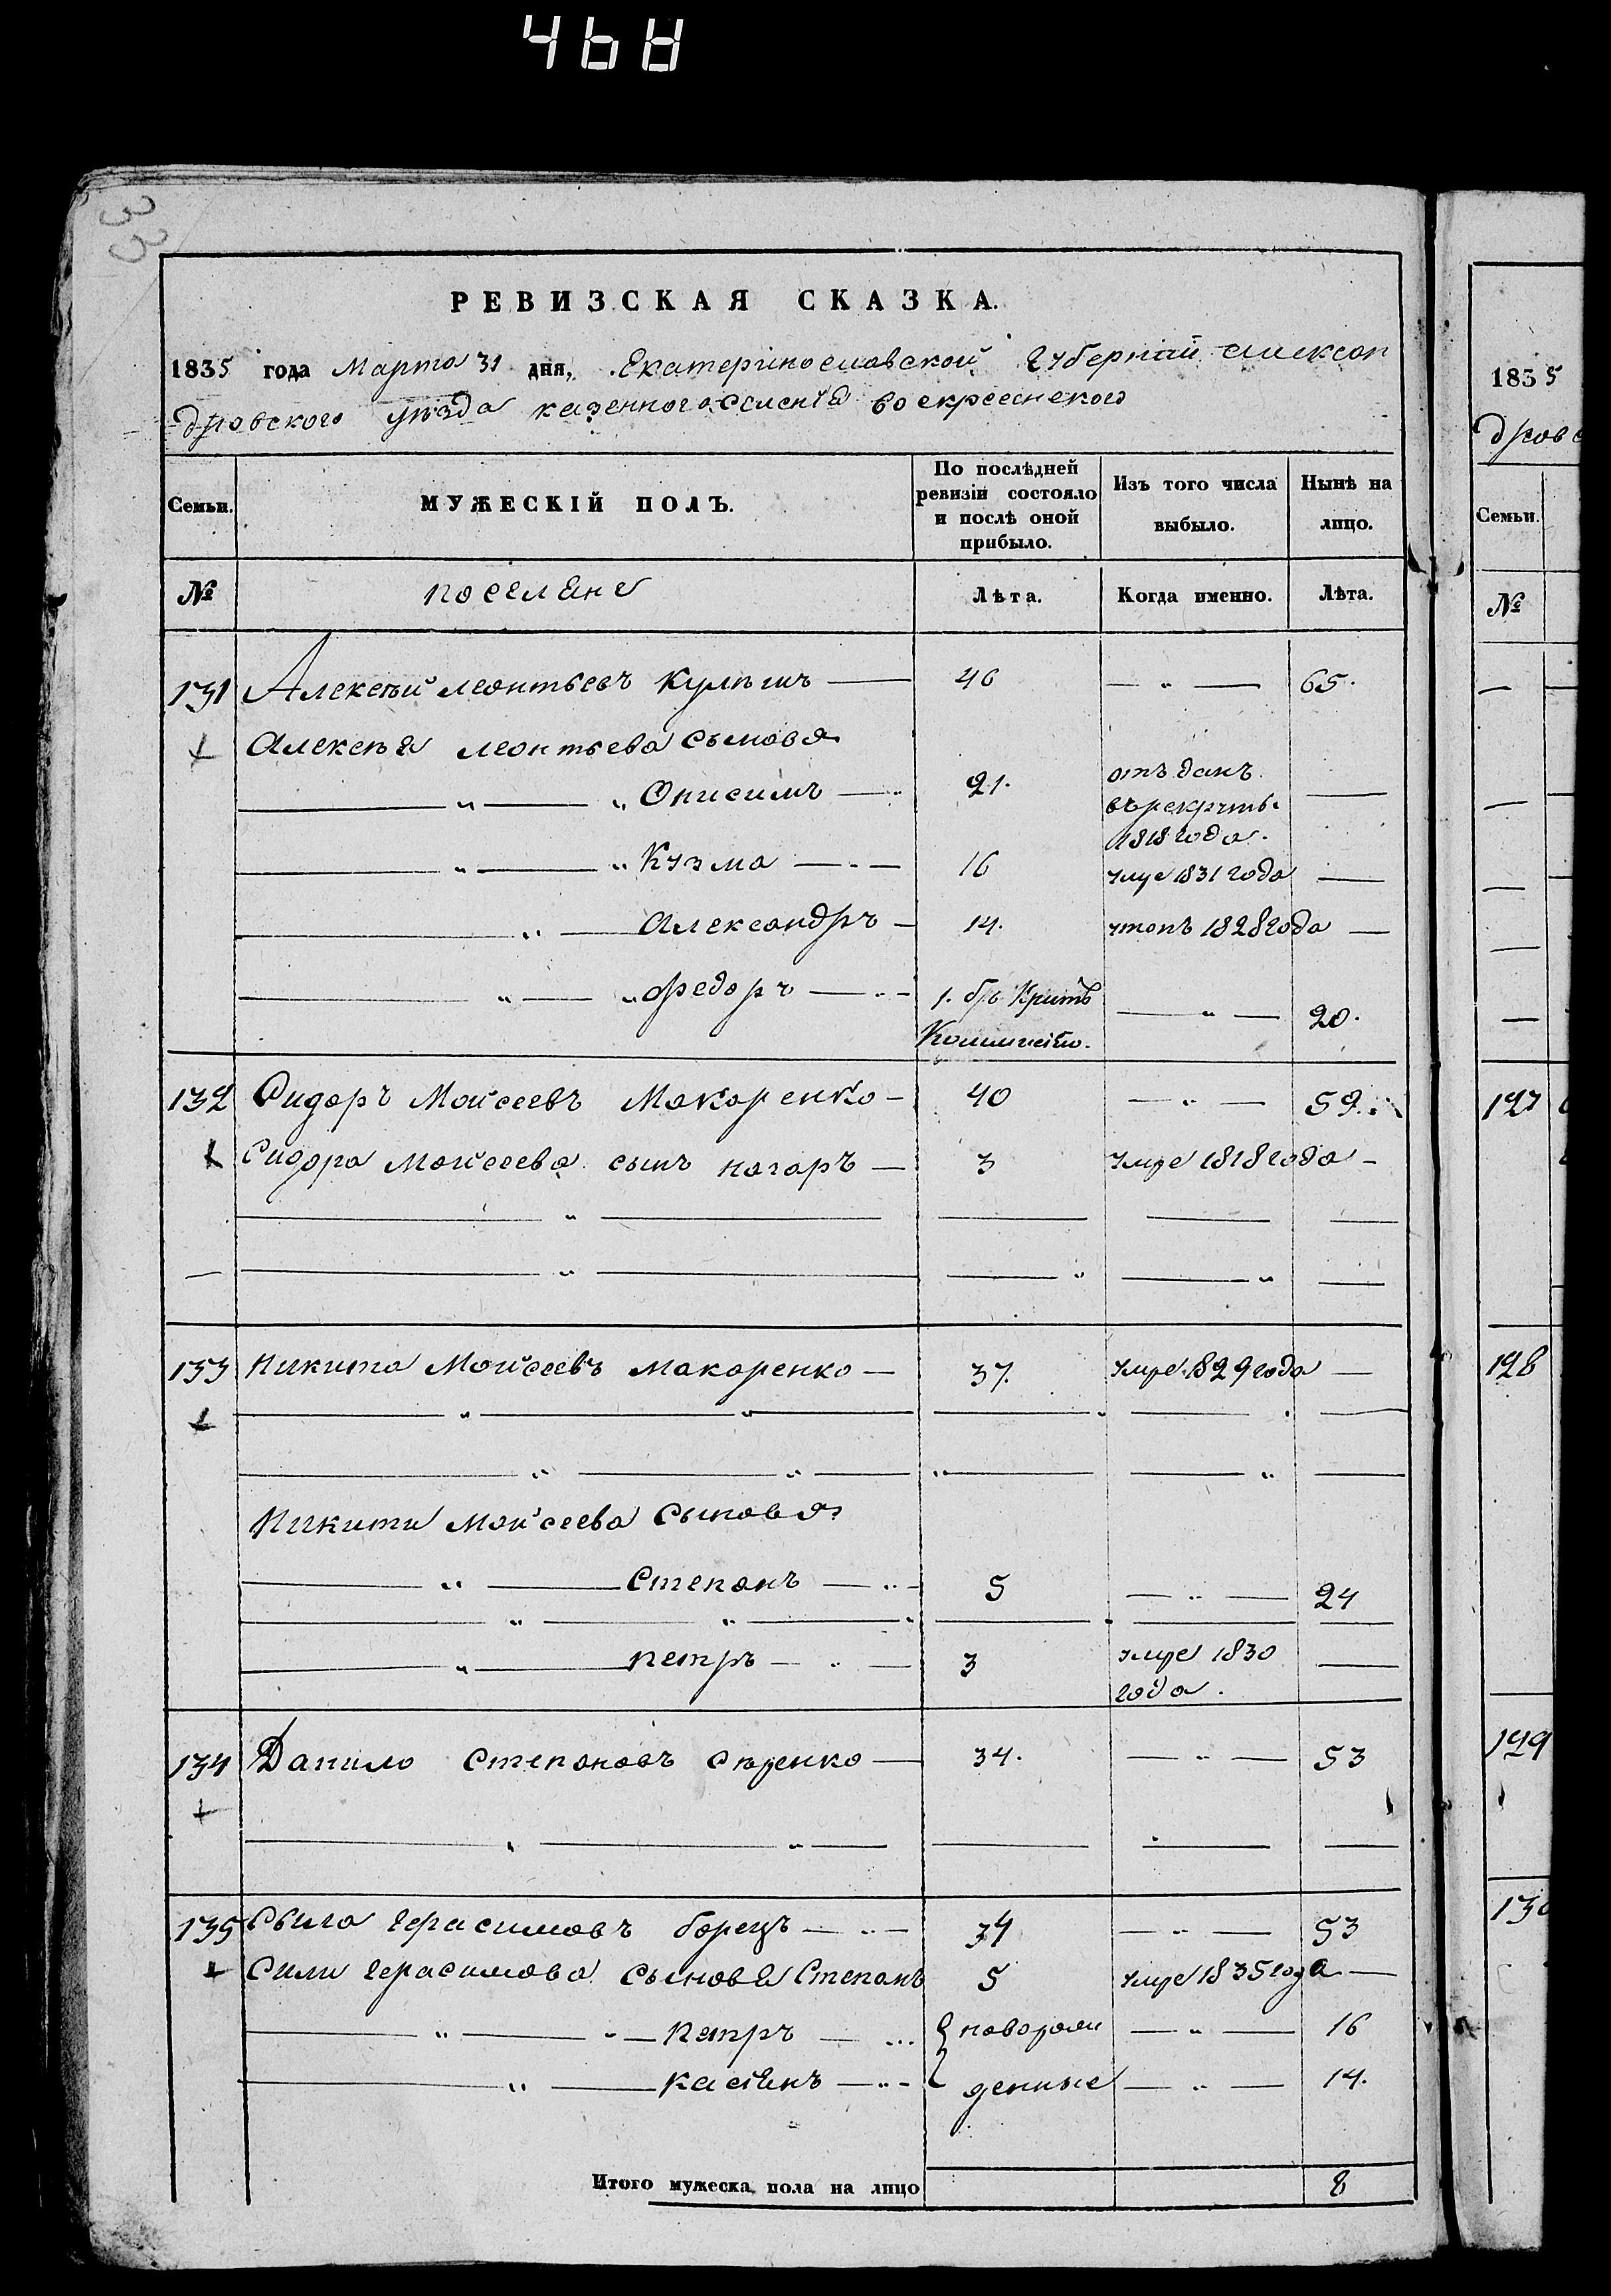 468
33
РЕВИЗСКАЯ СКАЗКА.
1835 года Марта 31 дня, Екатеринославской Губерний Алексан
дровского уѣзда казенного селенія воскресенского
Семьи. МУЖЕСКІЙ ПОЛЪ. По послѣдней ревизіи состояло и послѣ оной прибыло. Изъ того числа выбыло. Нынѣ на лицо.
№ поселяне Лѣта. Когда именно. Лѣта.
131 Алексѣй леонтьевъ Кулѣшъ — 46 — „ — 65.
Алексѣя леонтьева сыновя
— „ — „ Онисимъ — 21. отъданъ —
въ рекруты
1818 года.
— „ — „ Кузма — 16 умре 1831 года —
„ — Александръ — 14. утопъ 1828 года —
— „ — „ федоръ — 1. — „ — 20.
132 Сидоръ Моисеевъ Макоренко — 40 — „ — 59.
Сидора Моисеева сынъ назаръ — 3 умре 1818 года —
133 Никита Моисеевъ макаренко — 37. умре 1829 года —
Никити Моисеева Сыновя
— „ — Степанъ — 5 — „ — 24
— „ — петръ — 3 умре 1830 —
года.
134 Данило степановъ сѣренко — 34. — „ — 53
135 Сыла герасимовъ борецъ — 34 — „ — 53
Сили герасимова сыновя Степанъ 5 умре 1835 года —
— „ — „ — петръ — новорож — „ — 16
— „ — касіянъ — денные — „ — 14.
Итого мужеска пола на лицо 8
1835
дровс
Семьи.
№
127
128
129
130